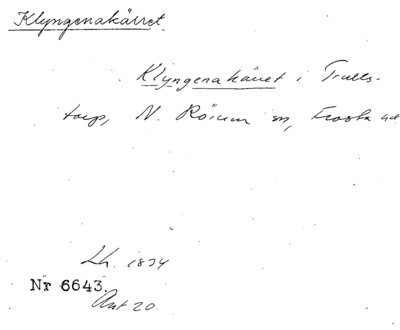 Klyngenakärret.
Klyngenakärret i Trulls-
torp, N. Rörum sn, Frosta hd
Lh. 1834
Nr 6643.
Akt 20.